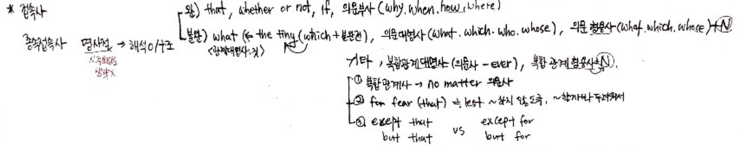 * 접속사
완) that, whether or not, if, 의문부사 (why. when. how. where)
종속접속사 명사절 → 해석 O/구조
불완) what (← the thing (which + 불완전), 의문대명사 (what. which. who. whose), 의문형용사 (what. which. whose) + N
기타, 복합관계대명사 (의문사 - ever), 복합관계형용사 + N.
① 복합관계사 → no matter 의문사
② for fear (that) ≒ lest ~하지 않도록, ~할까봐 두려워서
③ except that vs except for
but that but for